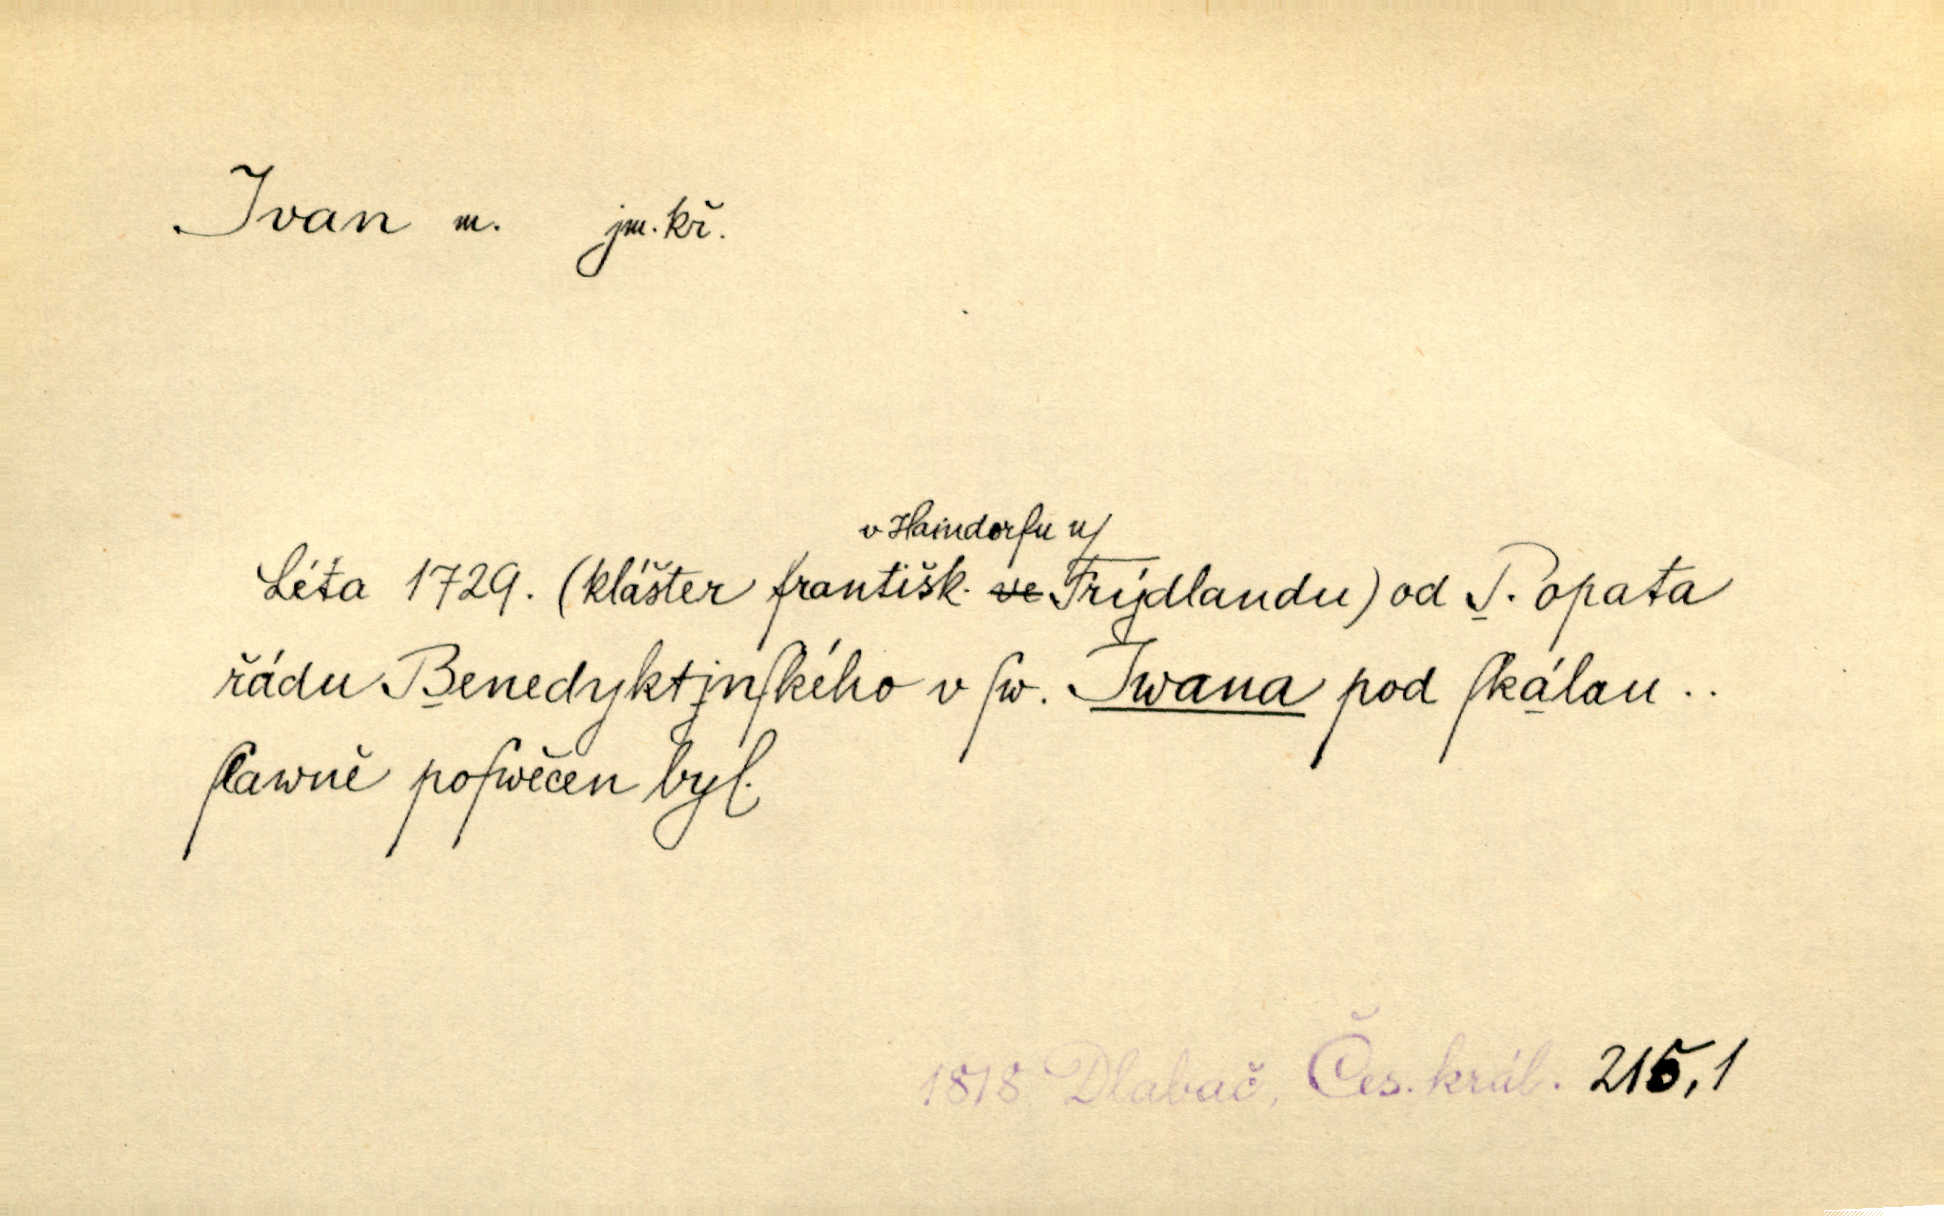 Ivan m. jm. kř.
v Haindorfu u/
Léta 1729. (klášter františk. ve Frýdlandu) od P. opata
řádu Benedyktjnſkého v ſw. Iwana pod ſkálau ..
ſlawně poſwěcen byl.
1818 Dlabač, Čes. král. 215,1